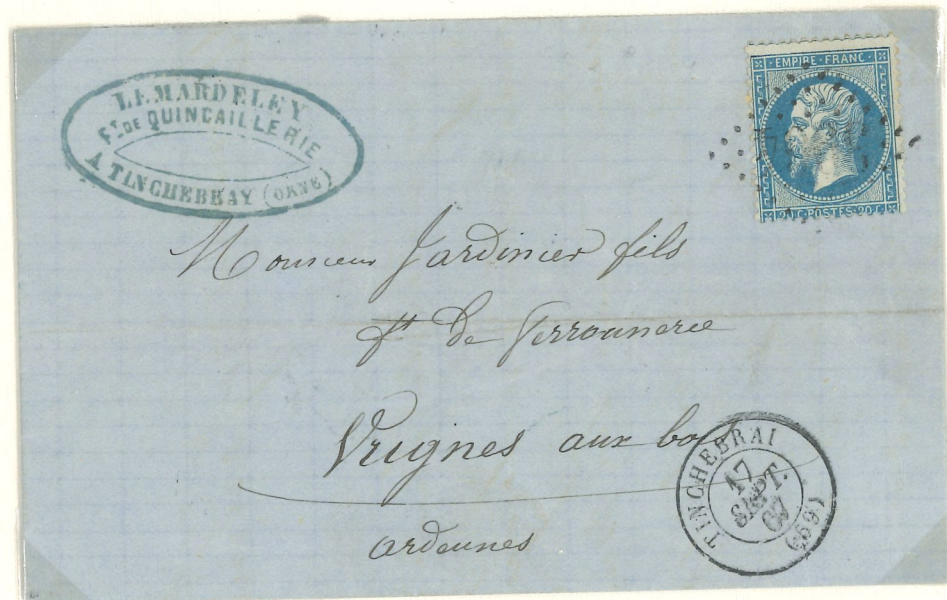 LEMARDELEY
Ft. DE QUINCAILLERIE
A TINCHEBRAY (ORNE)
EMPIRE · FRANC ·
20 C · POSTES · 20 C ·
Monsieur Jardinier fils
ft de Ferronnerie
Vrignes aux bois
ardennes
TINCHEBRAI
17
SEPT.
67
(59)